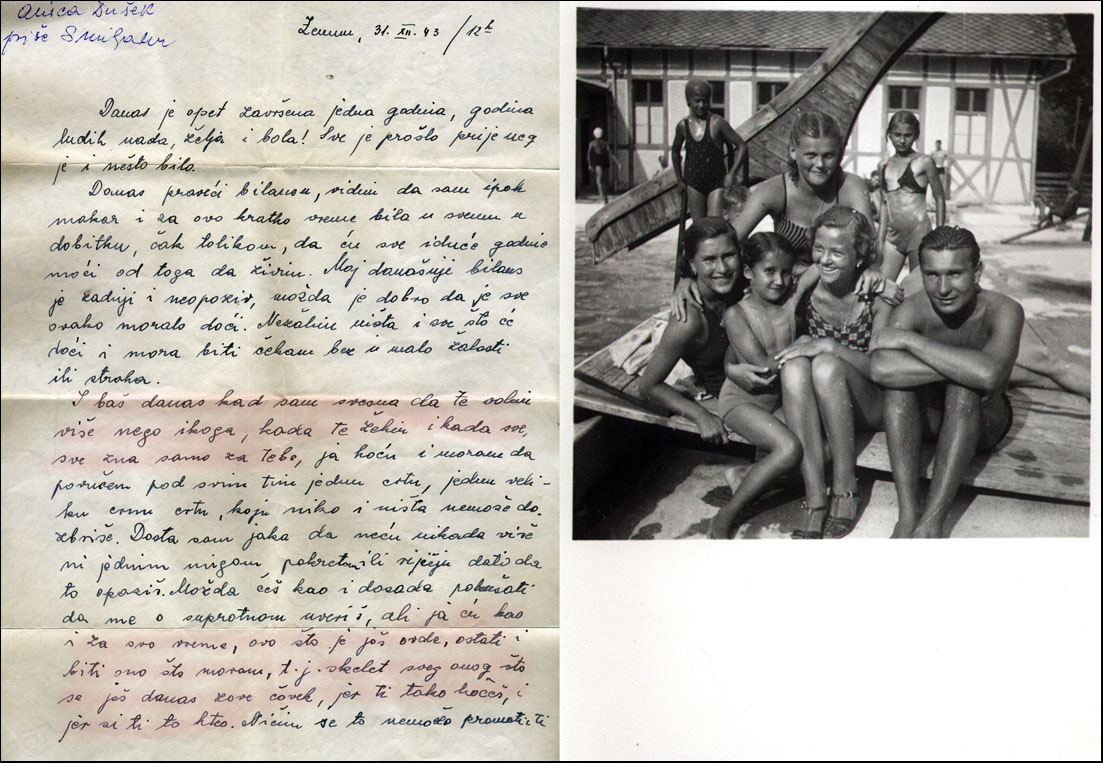 Anica Dušek
piše Smiljan
Zemun, 31. XII. 43 / 12h
Danas je opet završena jedna godina, godina
ludih nada, želja i bola! Sve je prošlo prije neg
je i nešto bilo.
Danas praveći bilansu, vidim da sam ipak
makar i za ovo kratko vreme bila u svemu u
dobitku, čak tolikom, da ću sve iduće godine
moći od toga da živim. Moj današnji bilans
je zadnji i neopoziv, možda je dobro da je sve
ovako moralo doći. Nežalim ništa i sve što će
doći i mora biti čekam bez u malo žalosti
ili straha.
I baš danas kad sam svesna da te volim
više nego ikoga, kada te želim i kada sve,
sve zna samo za tebe, ja hoću i moram da
povučem pod svim tim jednu crtu, jednu veli-
ku crnu crtu, koju niko i ništa nemože da
zbriše. Dosta sam jaka da neću nikada više
ni jednim migom pokretom ili riječju dati da
to opaziš. Možda ćeš kao i dosada pokušati
da me o suprotnom uveriš, ali ja ću kao
i za svo vreme, ovo što je još ovde, ostati i
biti ono što moram, t.j. skelet sveg onog što
se još danas zove čovek, jer ti tako hoćeš, i
jer si ti to hteo. Ničim se to nemože promeniti